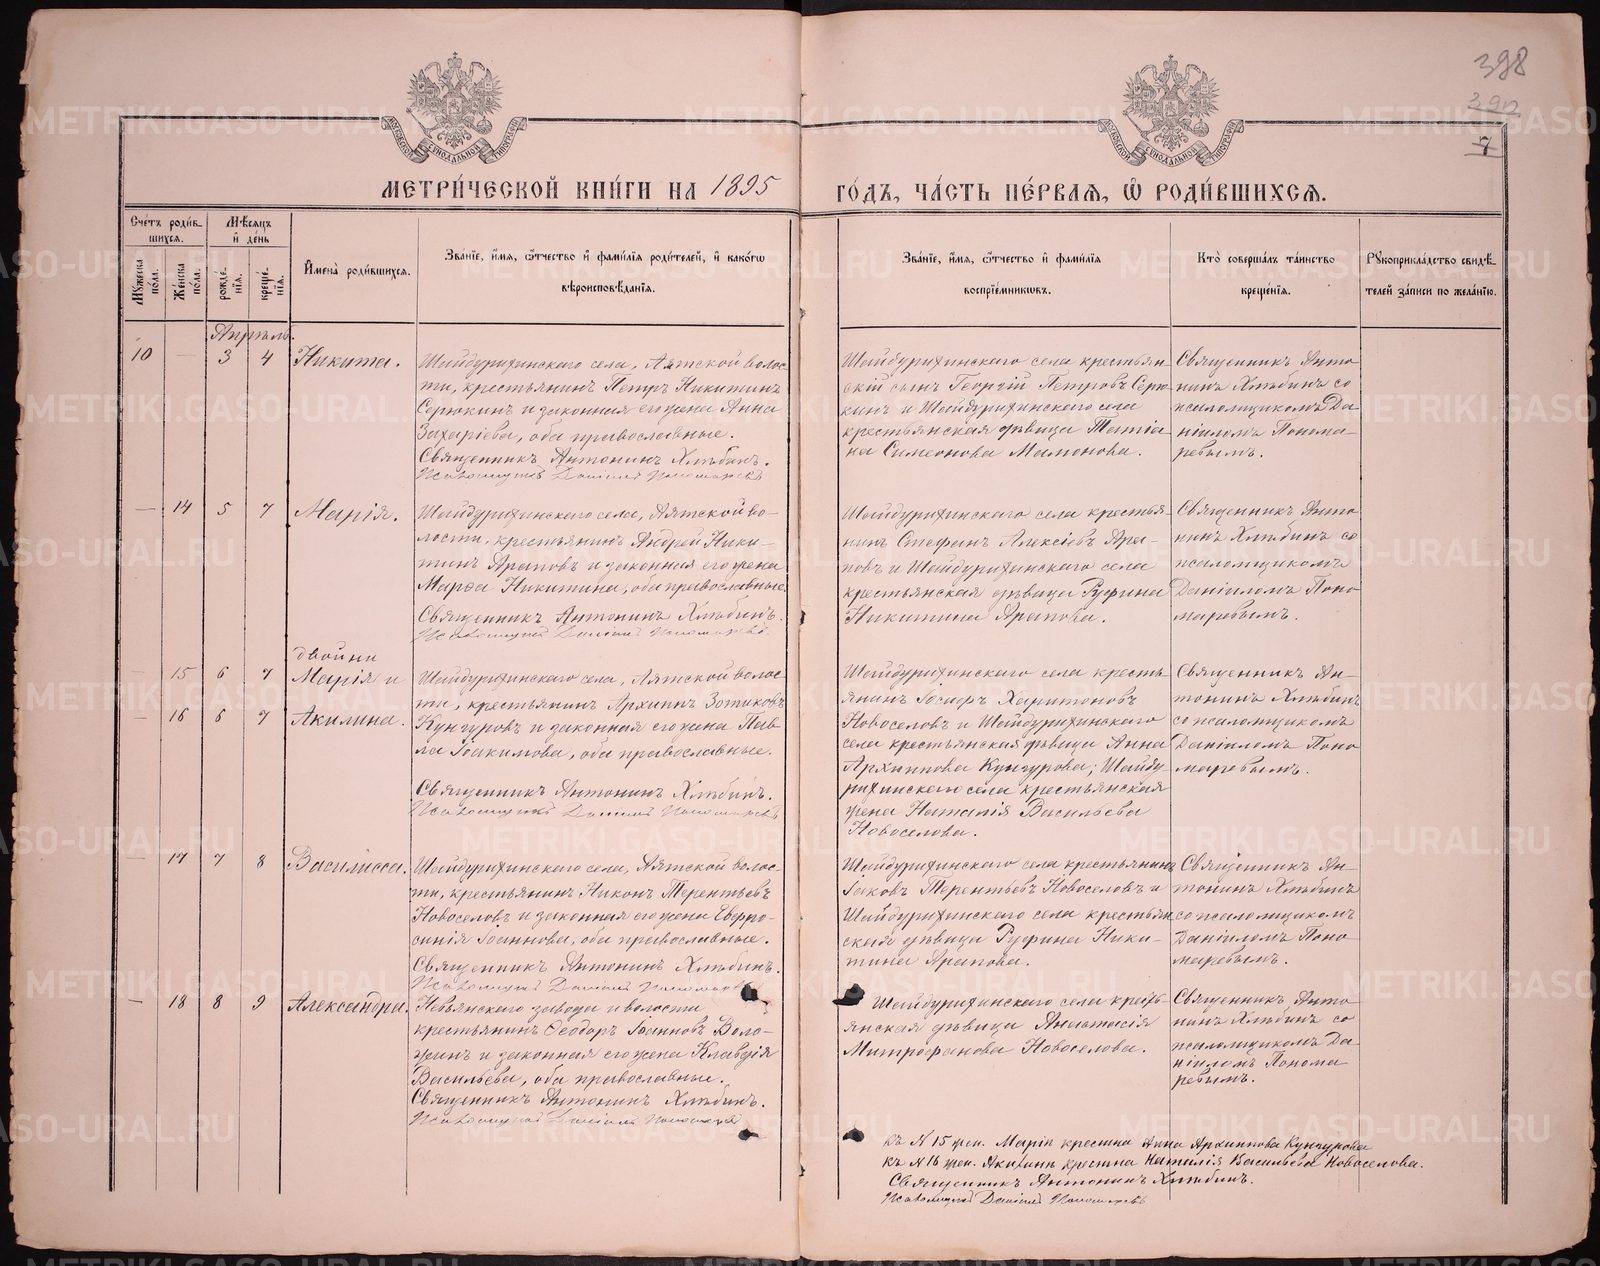 398
390
7
МОСКОВСКОЙ СѴНОДАЛЬНОЙ ТИПОГРАФІИ
МОСКОВСКОЙ СѴНОДАЛЬНОЙ ТИПОГРАФІИ
МЕТРИ́ЧЕСКОЙ КНИ́ГИ НА 1895 ГО́ДЪ, ЧА́СТЬ ПЕ́РВАЯ, Ѿ РОДИ́ВШИХСЯ.
Сче́тъ роди́в-
шихся.
Мѣ́сяцъ
и҆ де́нь
Мꙋ́жеска по́ла.
Же́нска по́ла.
рожде́-
нїѧ.
креще́-
нїѧ.
И҆мена̀ роди́вшихся.
Зва́нїе, и҆́мя, ѻ҆́тчество и҆ фами́лїя роди́телей, и҆ како́гѡ
вѣроисповѣ́данїя.
Зва́нїе, и҆́мя, ѻ҆́тчество и҆ фами́лїя
воспрїе́мникѡвъ.
Кто̀ соверша́лъ та́инство
креще́нїя.
Рꙋкоприкла́дство свидѣ́-
телей за́писи по жела́нїю.
Апрѣль.
10 — 3 4 Никита.
Шайдурихинскаго села, Аятской волос-
ти, крестьянинъ Петръ Никитинъ
Серюкинъ и законная его жена Анна
Захаріева, оба православные.
Священникъ Антонинъ Хлѣбинъ.
Псаломщикъ Даніилъ Пономаревъ
Шайдурихинскаго села крестьян-
скій сынъ Георгій Петровъ Серю-
кинъ и Шайдурихинскаго села
крестьянская дѣвица Татіа-
на Симеонова Мамонова.
Священникъ Анто-
нинъ Хлѣбинъ со
псаломщикомъ Да-
ніиломъ Понома-
ревымъ.
— 14 5 7 Марія.
Шайдурихинскаго села, Аятской во-
лости, крестьянинъ Андрей Ники-
тинъ Араповъ и законная его жена
Марѳа Никитина, оба православные.
Священникъ Антонинъ Хлѣбинъ.
Псаломщикъ Даніилъ Пономаревъ
Шайдурихинскаго села крестья-
нинъ Стефанъ Алексіевъ Ара-
повъ и Шайдурихинскаго села
крестьянская дѣвица Руфина
Никитина Арапова.
Священникъ Анто-
нинъ Хлѣбинъ со
псаломщикомъ
Даніиломъ Поно
маревымъ.
двойни
— 15 6 7 Марія и
— 16 6 7 Акилина.
Шайдурихинскаго села, Аятской волос-
ти, крестьянинъ Архипъ Зотиковъ
Кунгуровъ и законная его жена Пав-
ла Іоакимова, оба православные.
Священникъ Антонинъ Хлѣбинъ.
Псаломщикъ Даніилъ Пономаревъ
Шайдурихинскаго села кресть-
янинъ Іосифъ Харитоновъ
Новоселовъ и Шайдурихинскаго
села крестьянская дѣвица Анна
Архиппова Кунгурова; Шайду-
рихинскаго села крестьянская
жена Наталія Васильева
Новоселова.
Священникъ Ан-
тонинъ Хлѣбинъ
со псаломщикомъ
Даніиломъ Поно
маревымъ.
— 17 7 8 Василисса.
Шайдурихинскаго села, Аятской волос-
ти, крестьянинъ Никонъ Терентьевъ
Новоселовъ и законная его жена Евфро-
синія Іоаннова, оба православные.
Священникъ Антонинъ Хлѣбинъ.
Псаломщикъ Даніилъ Пономаревъ
Шайдурихинскаго села крестьянинъ
Іаковъ Терентьевъ Новоселовъ и
Шайдурихинскаго села крестьян
ская дѣвица Руфина Ники-
тина Арапова.
Священникъ Ан-
тонинъ Хлѣбинъ
со псаломщикомъ
Даніиломъ Поно-
маревымъ.
— 18 8 9 Александра.
Невьянскаго завода и волости
крестьянинъ Ѳеодоръ Іоанновъ Воло-
жинъ и законная его жена Клавдія
Васильева, оба православные.
Священникъ Антонинъ Хлѣбинъ.
Псаломщикъ Даніилъ Пономаревъ
Шайдурихинскаго села кресть-
янская дѣвица Анастасія
Митрофанова Новоселова.
Священникъ Анто-
нинъ Хлѣбинъ со
псаломщикомъ Да-
ніиломъ Понома
ревымъ.
къ N 15 жен. Маріи крестна Анна Архиппова Кунгурова
къ N 16 жен. Акилины крестна Наталія Васильева Новоселова.
Священникъ Антонинъ Хлѣбинъ.
Псаломщикъ Даніилъ Пономаревъ
METRIKI.GASO-URAL.RU